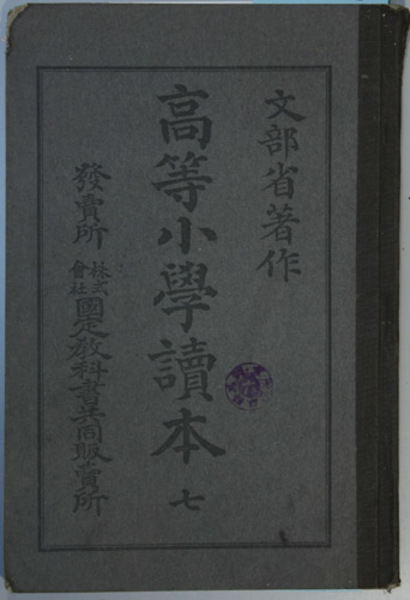 文部省著作
高等小學讀本 七
發賣所 株式會社 國定敎科書共同販賣所